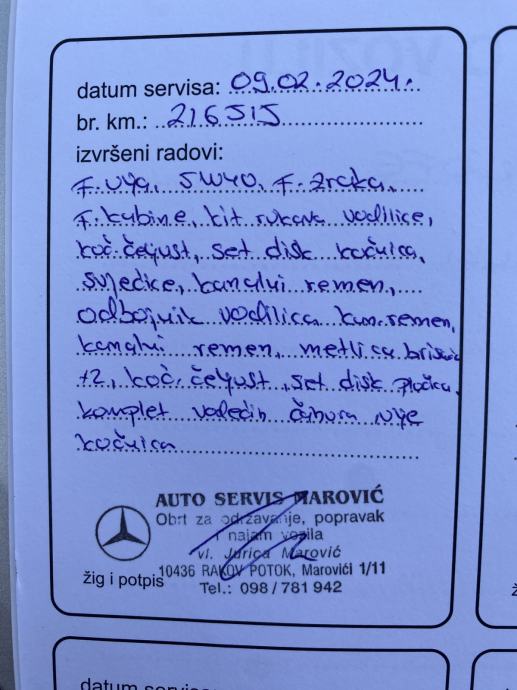 datum servisa: 09.02.2024.
br. km.: 216515
izvršeni radovi:
F. ulja, 5W40, F. zraka,
F. kabine, kit rukava vodilice,
koč. čeljust, set disk kočnica,
svječice, kanalni remen,
odbojnik vodilica kan. remen,
kanalni remen, metlica brisač
+2, koč. čeljust, set disk pločka,
komplet vodećih čahura
kočnica
AUTO SERVIS MAROVIĆ
Obrt za održavanje, popravak
i najam vozila
vl. Jurica Marović
10436 RAKOV POTOK, Marovići 1/11
Tel.: 098/781 942
žig i potpis
datum servisa